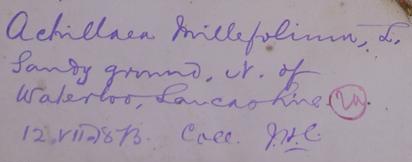 Achillaea Millefolium, L.
Sandy ground, N. of
Waterloo, Lancashire
12.VII. Coll. J.H.C.